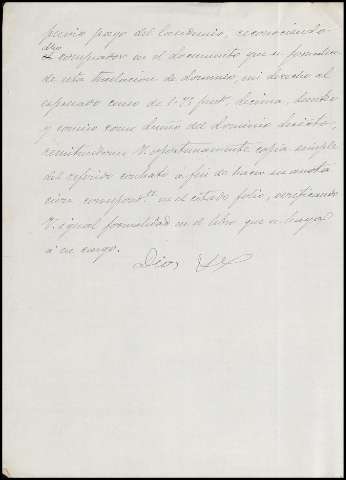 previo pago del laudemio, reconociendo
dho comprador en el documento que se formalice
de esta traslacion de dominio, mi derecho al
espresado censo de 1.73 pest, decima, tanteo
y comiso como dueño del dominio directo,
remitiendome V. oportunamente copia simple
del referido contrato a fin de hacer su anota
cion correspond.te en el citado folio, verificando
V. igual formalidad en el libro que se haya
á su cargo.
Dios &&